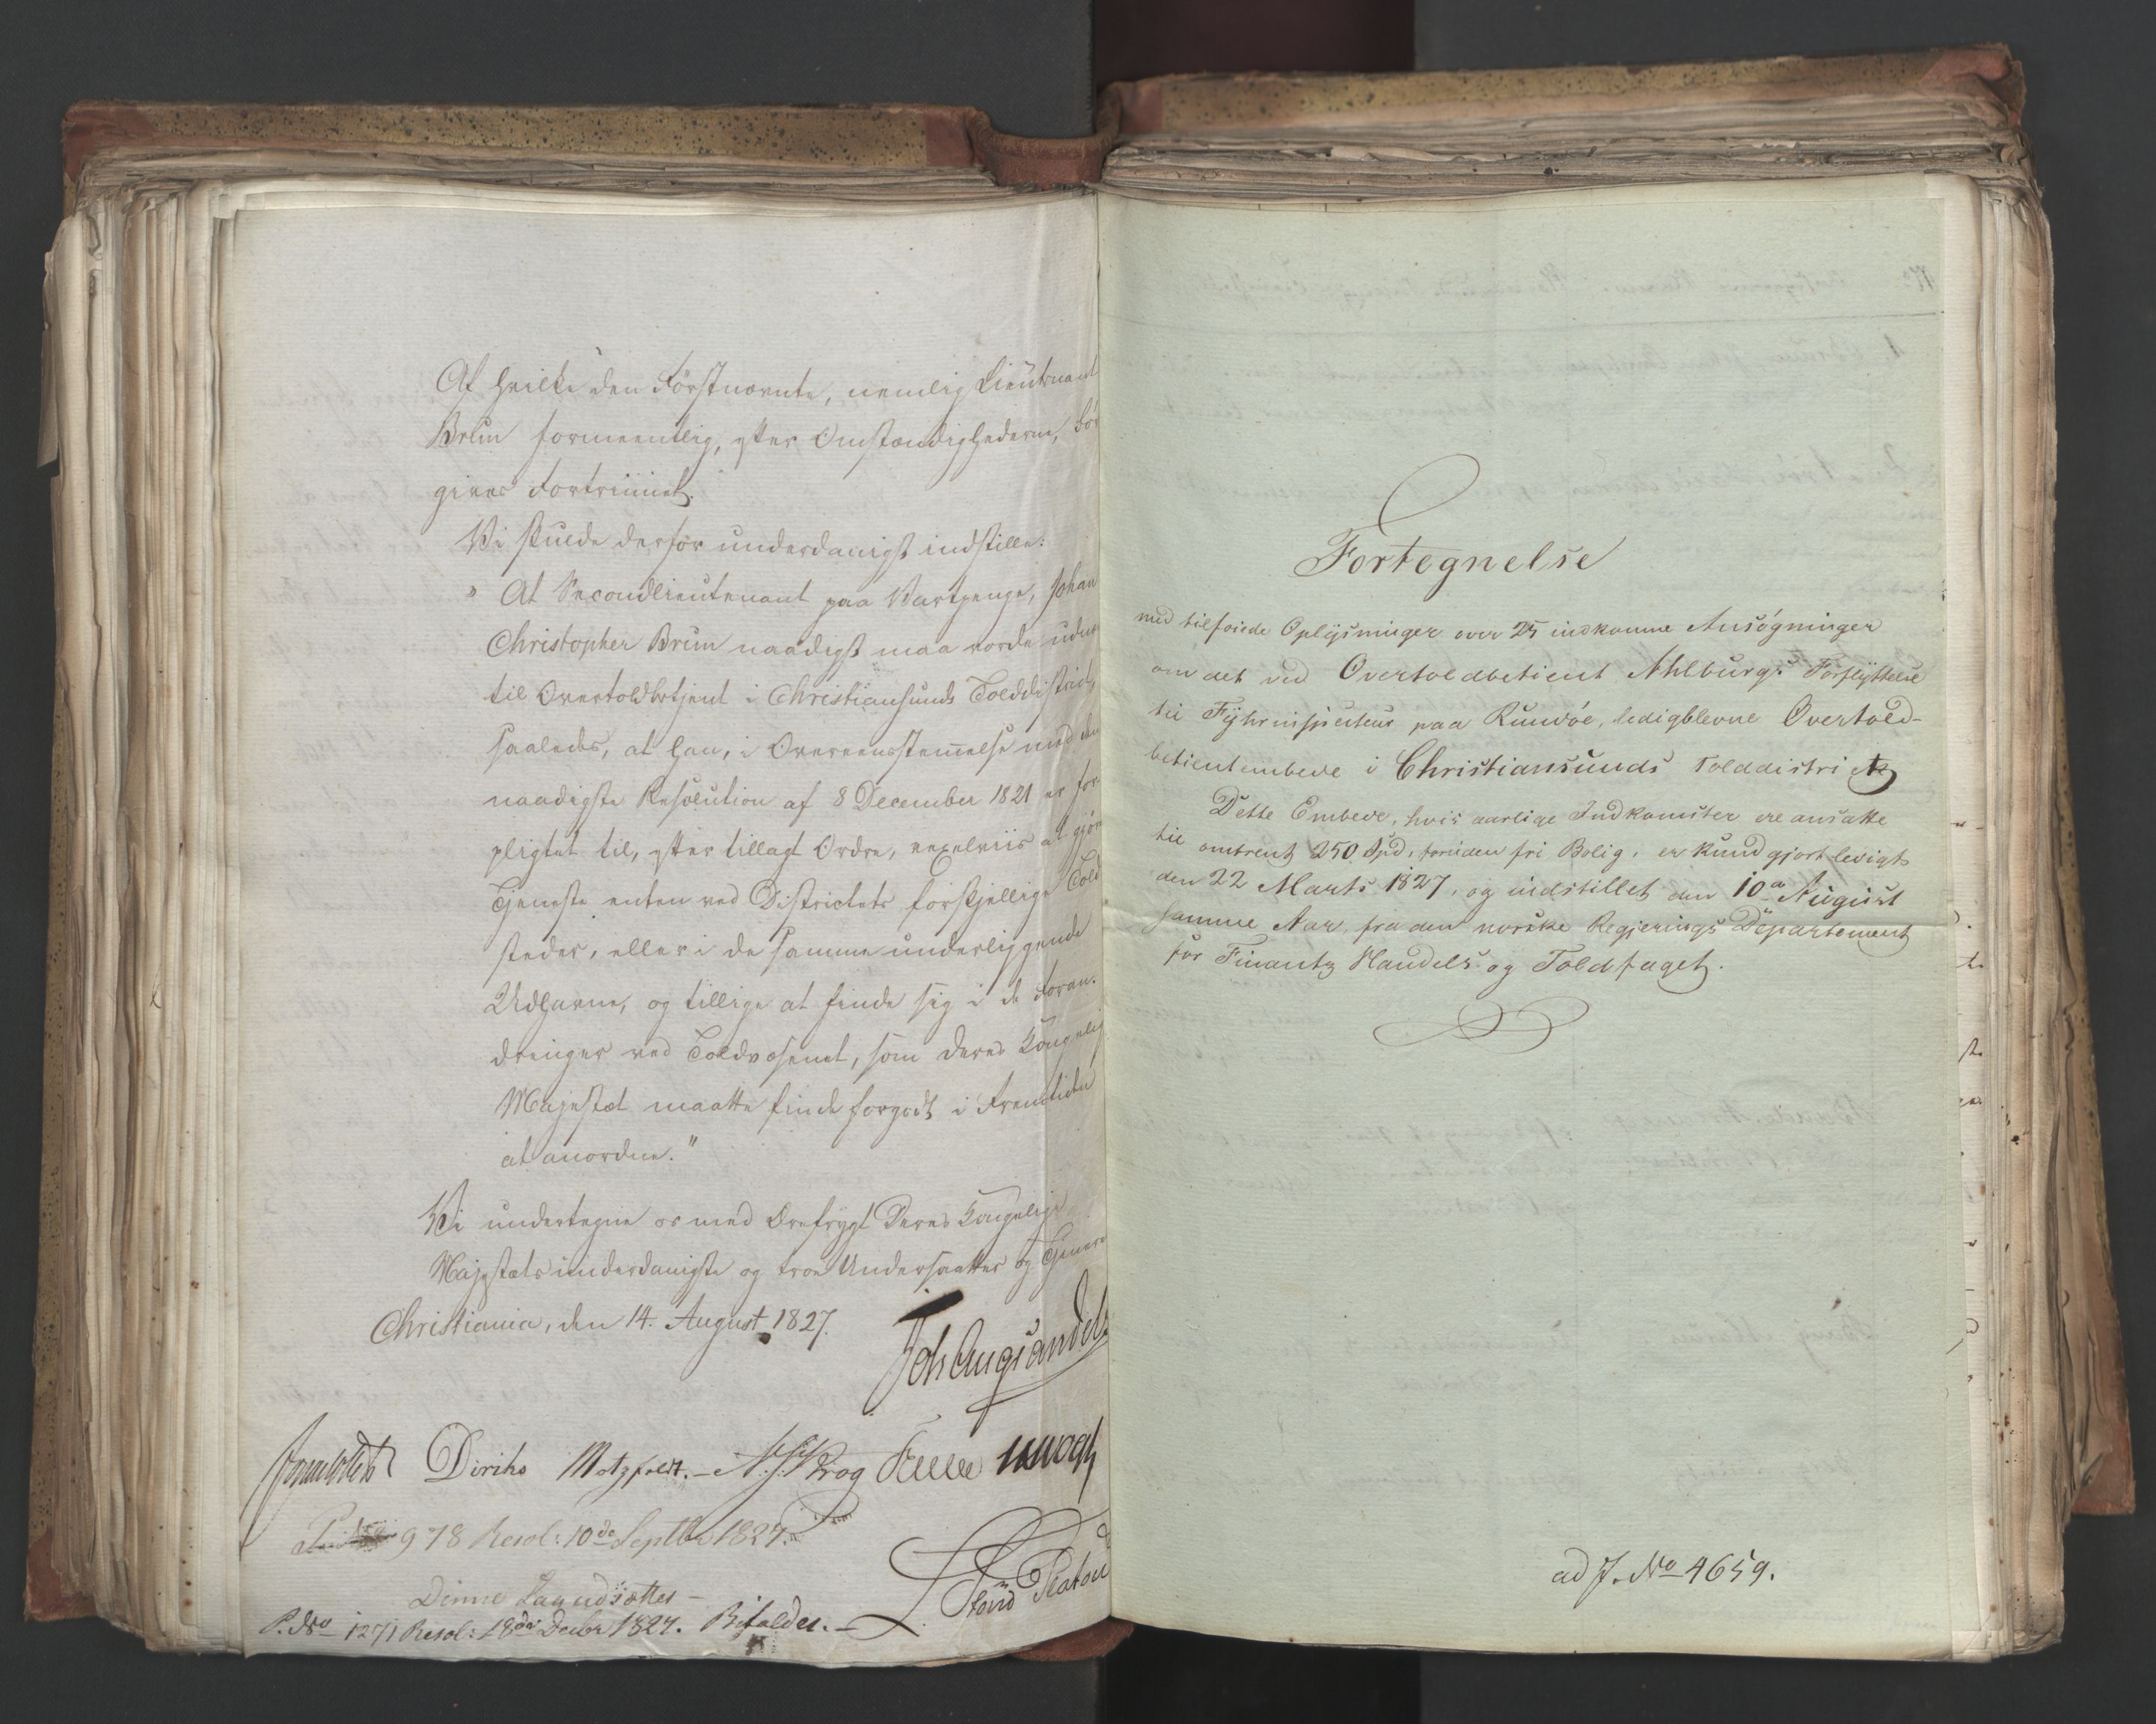 Af hvilke den Förstnævnte, nemlig Lieutnant
Brun formeentlig, efter Omstændighederne, bör
gives Fortrinnet.
Vi skulde derfor underdanigst indstille:
" At Secondlieutenant paa Vartpenge, Johan
Christopher Brun naadigst maa vorde udn
til Overtoldbetjent i Christiansunds Tolddistrict,
saaledes, at han, i Overeensstemmelse med den
naadigste Resolution af 8 December 1821 er for
pligtet til, efter tillagt Ordre, vexelviis at gjöre
Tjeneste enten ved Districtets forskjellige Told
steder, eller i de samme underliggende
Udhavne, og tillige at finde sig i de Foran-
dringer ved Toldvæsenet, som Deres Kongelig
Majestæt maatte finde forgodt i Fremtiden
at anordne."
Vi undertegne os med Ærefrygt Deres Kongelige
Majestæts underdanigste og troe Undersaatter og Tjenere
Christiania, den 14. August 1827.
Joh Aug Sandels
Diriks Motzfeldt. - Krog
978 Resol: 10de Septbr 1827.
Denne Sag udsættes -
P. No 1271 Resol: 18de Decbr 1827. Bifaldes. -
Fortegnelse
med tilföiede Oplysninger over 25 indkomne Ansögninger
om det ved Overtoldbetient Ahlburgs Forflyttelse
til Fyhrinspecteur paa Rundöe, ledigblevne Overtold-
betientembede i Christiansunds Tolddistrict
Dette Embede, hvis aarlige Indkomster ere ansatte
til omtrent 250 Spd, foruden fri Bolig, er kundgjort ledigt
den 22 Marts 1827, og indstillet den 10de August
samme Aar, fra den norske Regjerings Departement
for Finants Handels og Toldfaget.
ad J. No 4659.